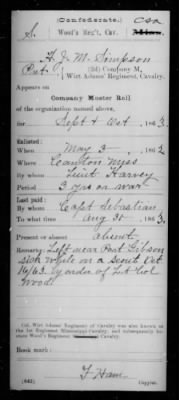 (Confederate.)
S. Wood's Reg't, Cav. CSA
Miss.
H. J. M. Simpson
Pvt., (2d) Company M,
Wirt Adams' Regiment, Cavalry.
Appears on
Company Muster Roll
of the organization named above,
for Sept & Oct, 1863
Enlisted:
When May 3, 1862
Where Canton Miss
By whom Lieut Harvey
Period 3 yrs or war
Last paid:
By whom Capt Sebastian
To what time Aug 31, 1863
Present or absent absent
Remarks: Left near Port Gibson
sick while on a scout Oct
16/63 by order of Lt Col
Wood
Col. Wirt Adams' Regiment of Cavalry was also known as
the 1st Regiment Mississippi Cavalry, and subsequently be-
came Wood's Regiment, Cavalry.
Book mark:
F. Ham
(642) Copyist.